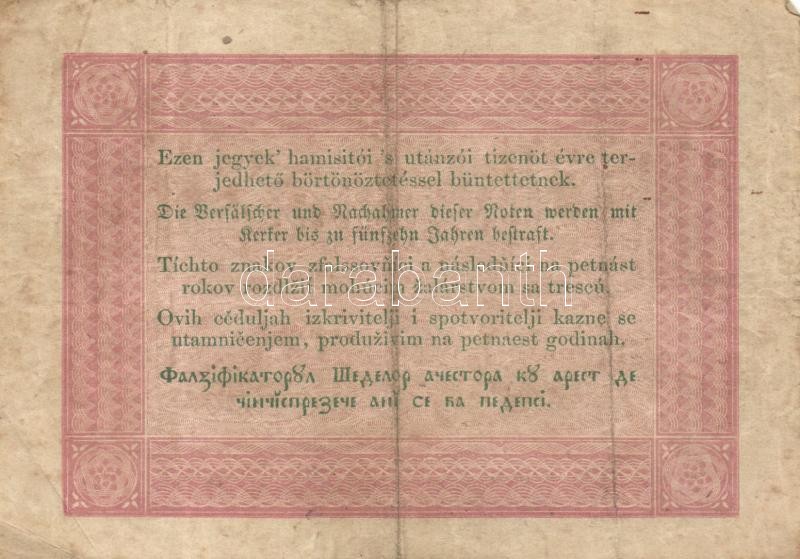 Ezen jegyek’ hamisitói ’s utánzói tizenöt évre ter-
jedhető börtönöztetéssel büntettetnek.
Die Verfälscher und Nachahmer dieser Noten werden mit
Kerker bis zu fünfzehn Jahren bestraft.
Tíchto znakov zfalšovňíci a následňíci na petnást
rokov rozďížiť mohúcim žalárstvom sa trescú.
darabanth
Ovih céduljah izkrivitelji i spotvoritelji kazne se
utamničenjem, produživim na petnaest godinah.
Фалꙃіфікаторꙋл Шеделор ачестора кꙋ арест де
чінчіспрезече ані се ва педепсі.